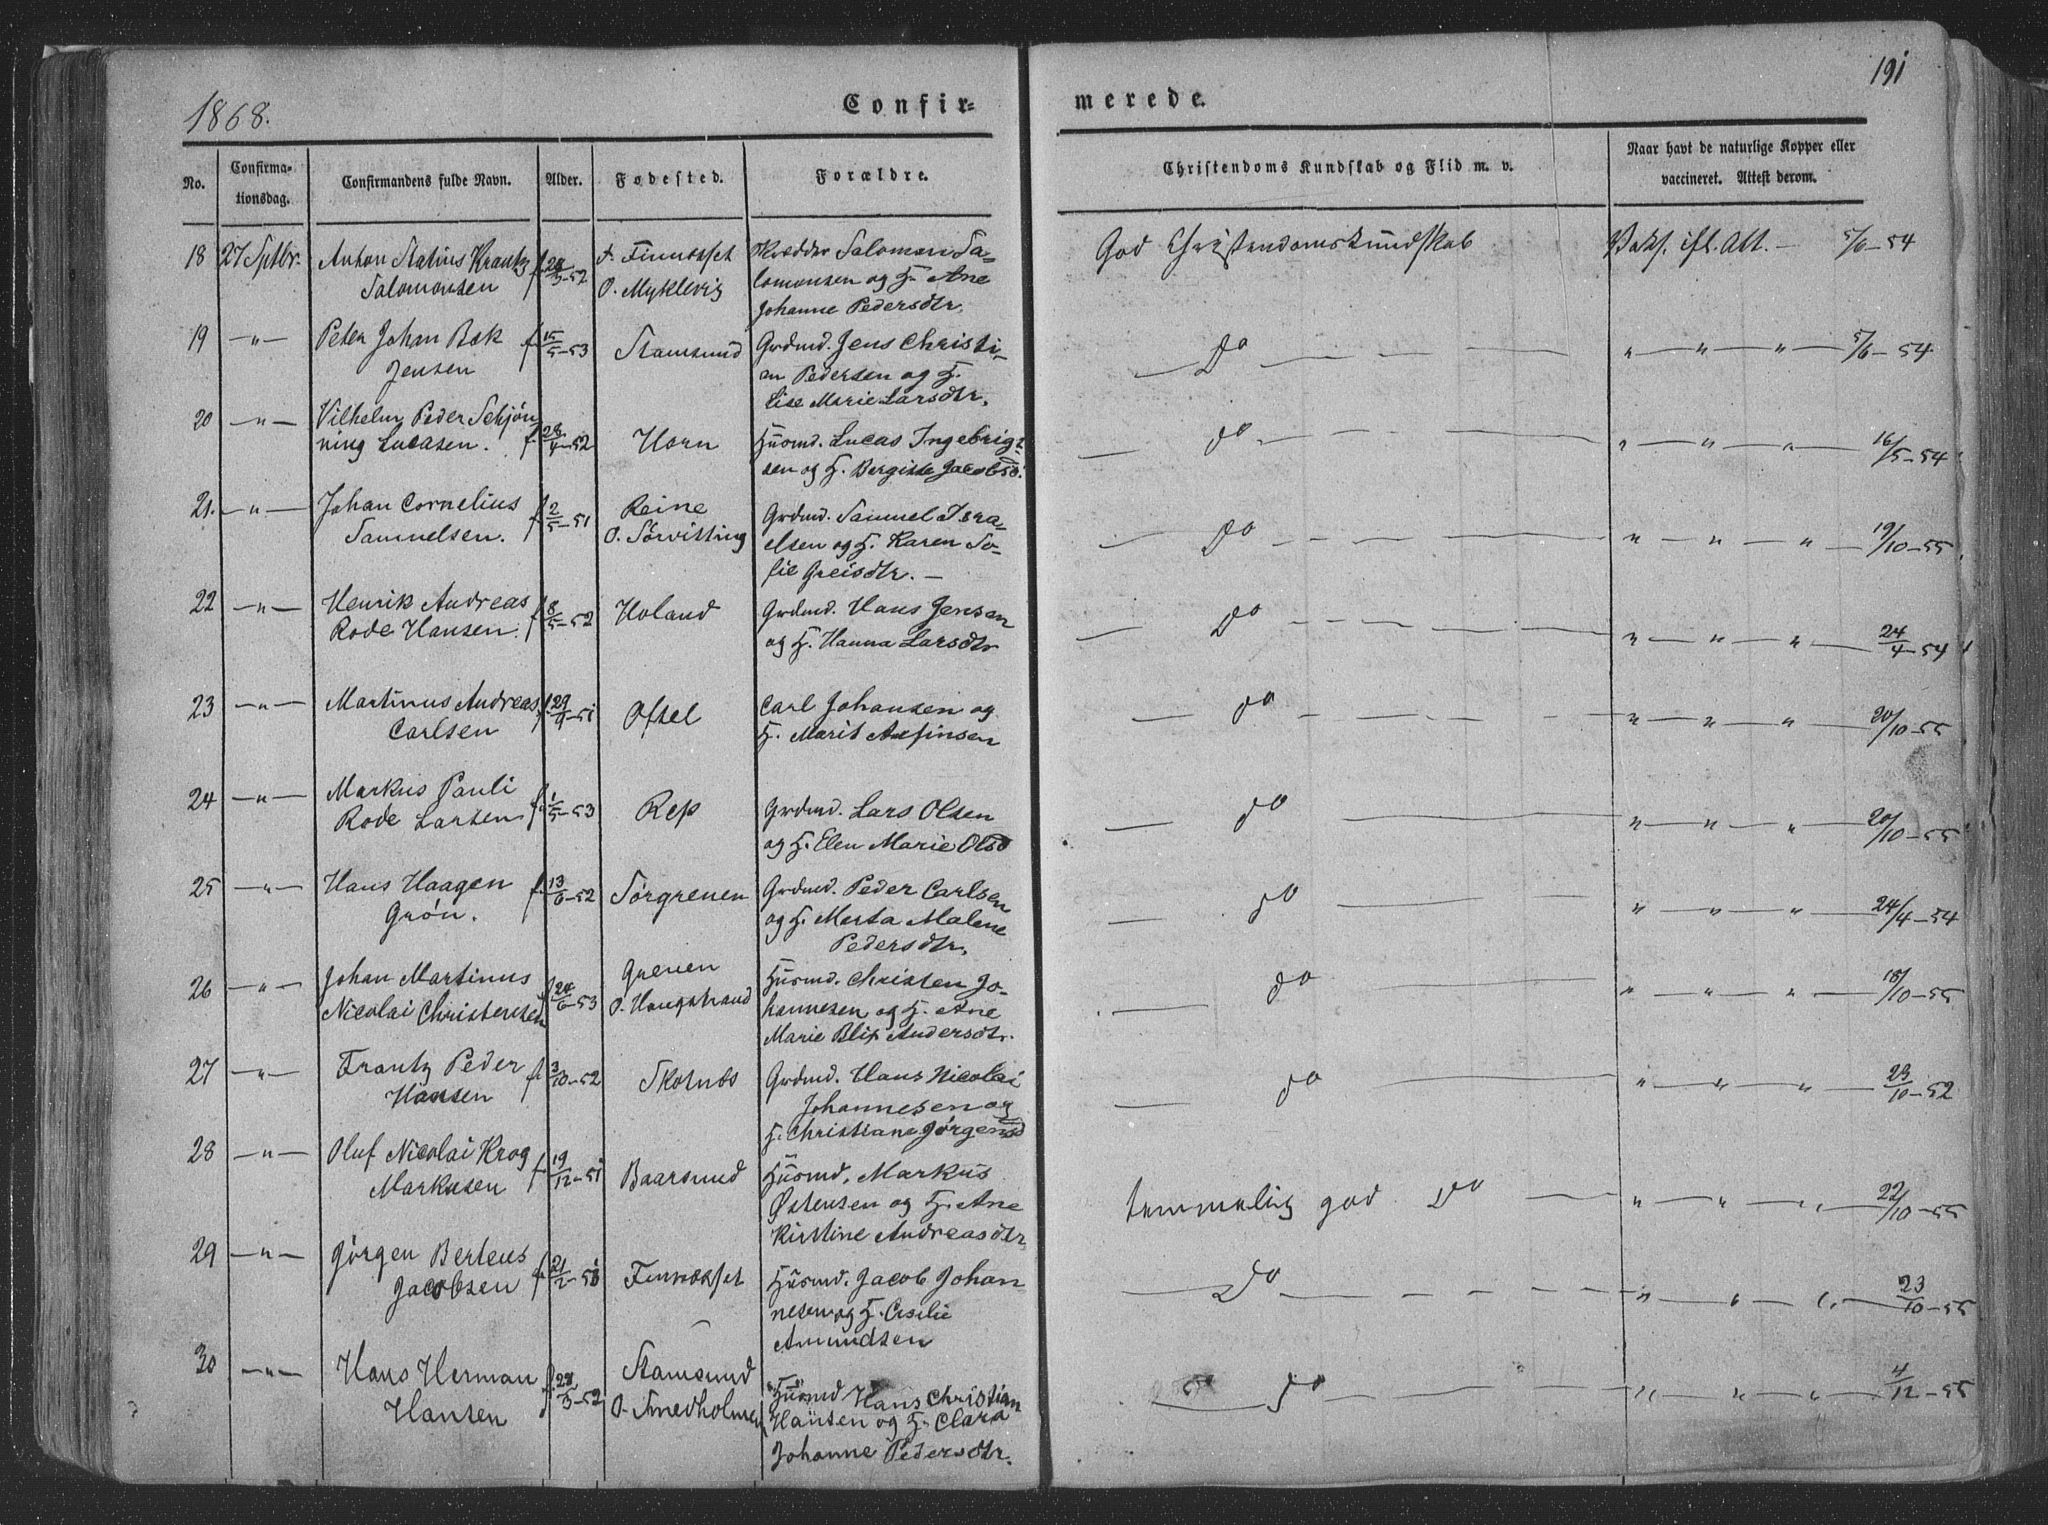 1868.
Confir-
merede.
191
No.
Confirma-
tionsdag.
Confirmandens fulde Navn.
Alder.
Fødested.
Forældre.
Christendoms Kundskab og Flid m. v.
Naar havt de naturlige Kopper eller
vaccineret. Attest derom.
18 27 Sptbr. Anton Statius Krantz
Salomonsen
f. Finnesset
O. Myklevig
Skrædder Salomon Sa-
lomonsen og H. Ane
Johanne Pedersdtr.
God Christendomskundskab
Vaks. ifl. Att. — 5/6–54
19 —"— Peter Johan Bæk
Jensen
f. 15/5–53
Stamsund
Grdmd. Jens Christi-
an Pedersen og H.
Lise Marie Larsdtr.
Do
" — " — " — 5/6–54
20 —"— Vilhelm Peder Schjøn-
ning Lucasen.
f. 28/4–52
Horn
Husmd. Lucas Ingebrigt-
sen og H. Bergitte Jacobsd.
do
" — " — " — 16/5–54
21. —"— Johan Cornelius
Samuelsen.
f. 2/5–51
Reine
O. Sørvitting
Grdmd. Samuel Isra-
elsen og H. Karen So-
fie Greisdtr. —
Do
" — " — " — 19/10–55
22 —"— Henrik Andreas
Rode Hansen.
f. 8/5–52
Holand
Grdmd. Hans Jensen
og H. Hanna Larsdtr
Do
" — " — " — 24/4–54
23 —"— Martinus Andreas
Carlsen
f. 29/9–51
Ofstel
Carl Johansen og
H. Marit Arfinsen
do
" — " — " — 20/10–55
24 —"— Markus Pauli
Rode Larsen
f. 1/5–53
Rep
Grdmd. Lars Olsen
og H. Elen Marie Olsd
do
" — " — " — 20/10–55
25 —"— Hans Haagen
Grøn.
f. 13/6–52
Sørgreven
Grdmd. Peder Carlsen
og H. Merta Malene
Pedersdtr.
do
" — " — " — 24/4–54
26 —"— Johan Martinus
Nicolai Christensen
f. 24/6–53
Greven
O. Haugstrand
Husmd. Christen Jo-
hannesen og H. Ane
Marie Blix Andersdtr.
do
" — " — " — 18/10–55
27 —"— Frantz Peder
Hansen
f. 3/10–52
Skotnes
Grdmd. Hans Nicolai
Johannesen og
H. Christiane Jørgensd
do
" — " — " — 23/10–52
28 —"— Oluf Nicolai Krog
Markusen
f. 19/12–51
Baarsund
Husmd. Markus
Østensen og H. Ane
Kirstine Andreasdtr
temmelig god Do
" — " — " — 22/10–55
29 —"— Jørgen Berteus
Jacobsen
f. 21/2–51
Finnesset
Husmd. Jacob Johan-
nesen og H. Cesilie
Amundsen
Do
" — " — " — 23/10–55
30 —"— Hans Herman
Hansen
Stamsund
O. Smedholmen
Husmd Hans Christian
Hansen og H. Clara
Johanne Pedersdtr.
do
" — " — " — 4/12–55